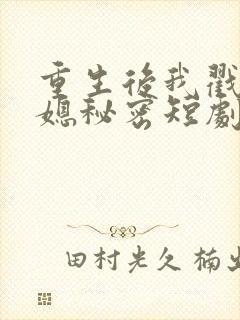 重生後我戳
媳秘密短劇
田村光久 楠出